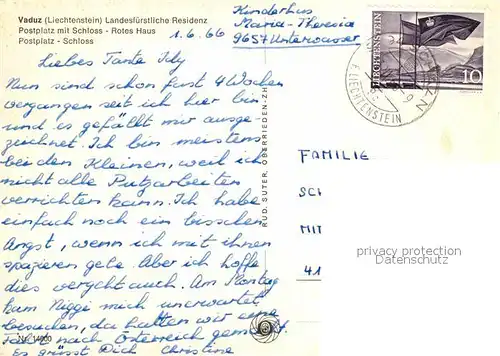 Vaduz (Liechtenstein) Landesfürstliche Residenz
Postplatz mit Schloss - Rotes Haus
Postplatz - Schloss
1.6.66
Kinderhus
Maria-Theresia
9657 Unterwasser
Liebes Tante Idy
Nun sind schon fast 4 Wochen
vergangen seit ich hier bin
und es gefällt mir ausge-
zeichnet. Ich bin meistens
bei den Kleinen, weil ich
nicht alle Putzarbeiten
verrichten kann. Ich habe
einfach noch ein bisschen
Angst, wenn ich mit ihnen
spazieren gehe. Aber ich hoffe
dies vergeht auch. Am Montag
kam Niggi mich unerwartet
besuchen, da hatten wir eine
nach Österreich gemacht.
Es grüsst Dich Christine
Nr. 14900
RUD. SUTER, OBERRIEDEN-ZH
LIECHTENSTEIN
10
F. LIECHTENSTEIN
FAMILIE
SCH
MIT
41
privacy protection
Datenschutz